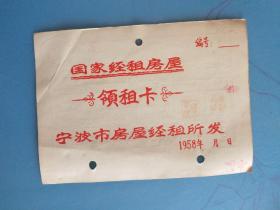 编号：
国家经租房屋
领租卡
宁波市房屋经租所发
1958年 月 日